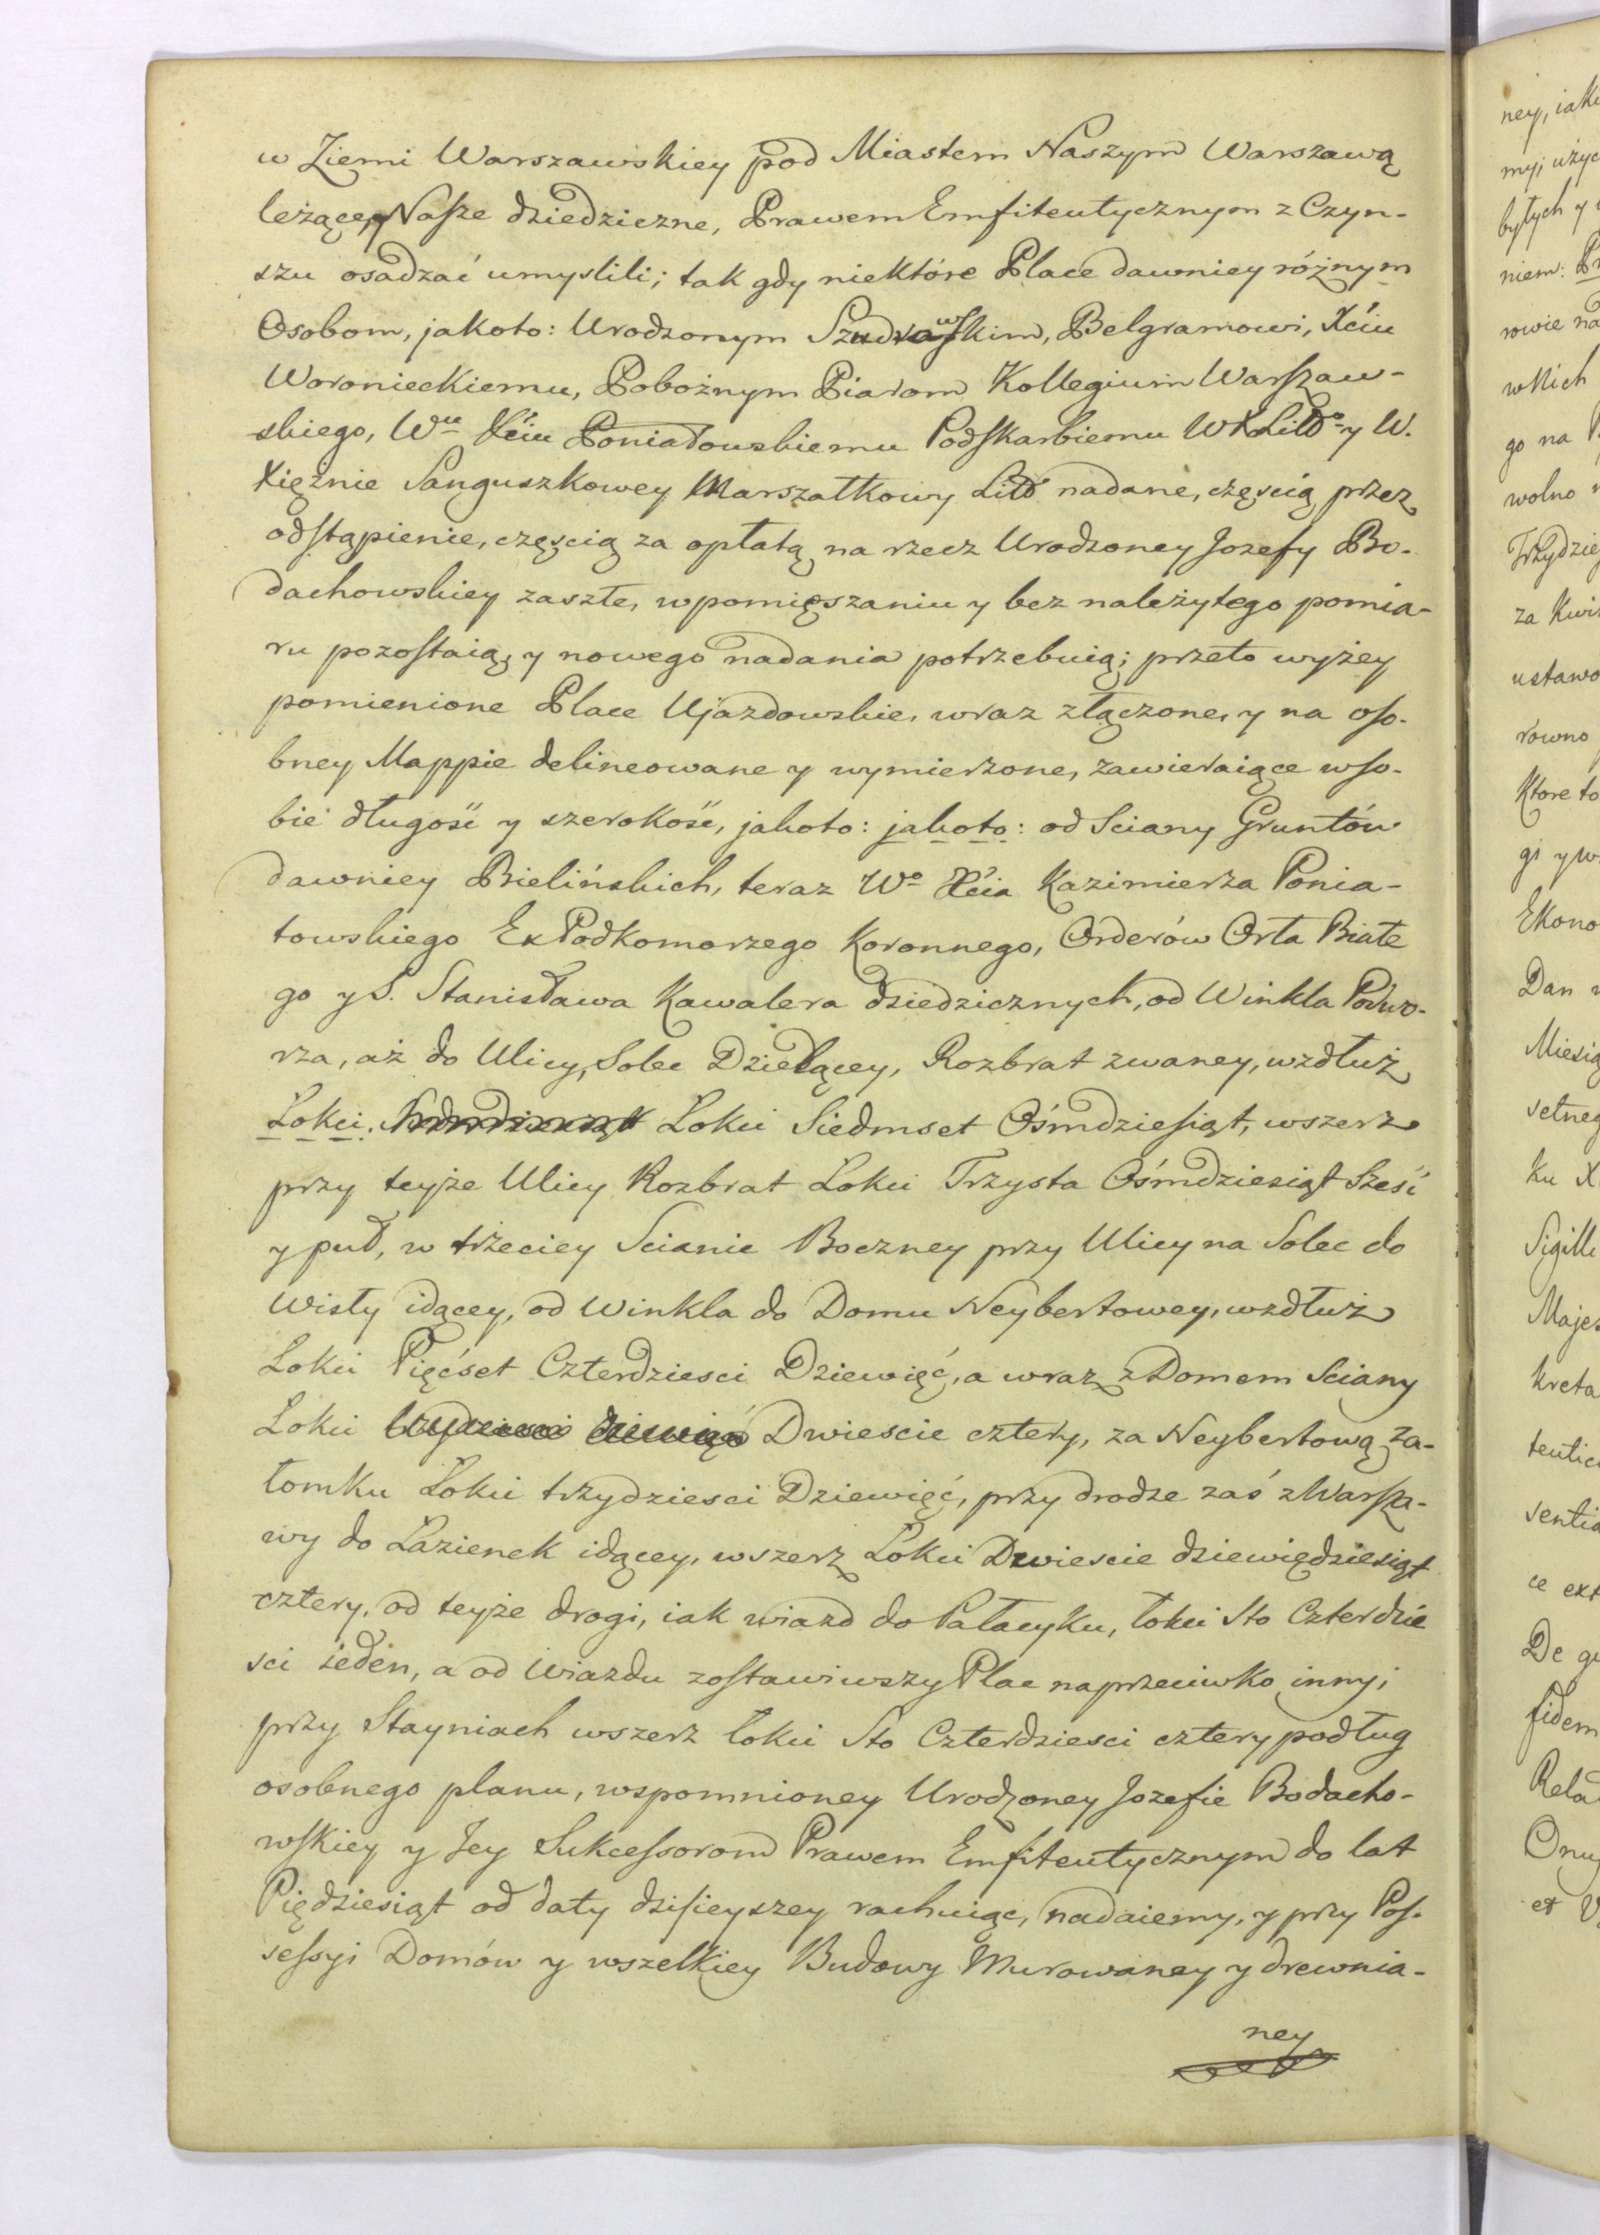 w Ziemi Warszawskiey pod Miastem Naszym Warszawą
leżące, y Nasze dziedziczne, Prawem Emfiteutycznym z Czyn-
szu osadzać umyslili; tak gdy niektóre Place dawniey różnym
Osobom, jakoto: Urodzonym Szudrawskim, Belgramowi, Xćiu
Woronieckiemu, Pobożnym Piarom Kollegium Warszaw-
skiego, Wu Xćiu Poniatowskiemu Podskarbiemu WXLitto y W.
Xiężnie Sanguszkowey Marszałkowy Litt nadane, częscią przez
odstąpienie, częscią za opłatą na rzecz Urodzoney Jozefy Bo-
dachowskiey zaszłe, w pomięszaniu y bez należytego pomia-
ru pozostaią, y nowego nadania potrzebuią; przeto wyżey
pomienione Place Ujazdowskie, wraz złączone, y na oso-
bney Mappie delineowane y wymierzone, zawieraiące w so-
bie długość y szerokość, jakoto: jakoto: od Sciany Gruntów
dawniey Bielińskich, teraz Wo Xćia Kazimierza Ponia-
towskiego ExPodkomorzego Koronnego, Orderów Orła Białe
go y S. Stanisława Kawalera dziedzicznych, od Winkla Podwo-
rza, aż do Ulicy, Solec Dzielącey, Rozbrat zwaney, wzdłuż
Łokci. Łokci Siedmset Ośmdziesiąt, wszerz
przy teyże Ulicy Rozbrat Łokci Trzysta Ośmdziesiąt Sześć
y puł, w trzeciey Scianie Boczney przy Ulicy na Solec do
Wisły idącey, od Winkla do Domu Neybertowey, wzdłuż
Łokci Pięćset Czterdziesci Dziewięć, a wraz z Domem Sciany
Łokci trzydziesci dziewięć Dwiescie cztery, za Neybertową za-
łomku Łokci trzydziesci Dziewięć, przy drodze zaś z Warsza-
wy do Łazienek idącey, wszerz Łokci Dwiescie dziewiędziesiąt
cztery, od teyże drogi, iak wiazd do Pałacyku, łokci Sto Czterdzie
sci ieden, a od Wiazdu zostawiwszy Plac naprzeciwko inny,
przy Stayniach wszerz łokci Sto Czterdziesci cztery podług
osobnego planu, wspomnioney Urodzoney Jozefie Bodacho-
wskiey y Jey Sukcessorom Prawem Emfiteutycznym do lat
Pięćdziesiąt od daty dzisieyszey rachuiąc, nadaiemy, y przy Pos-
sessyi Domów y wszelkiey Budowy Murowaney y drewnia-
ney